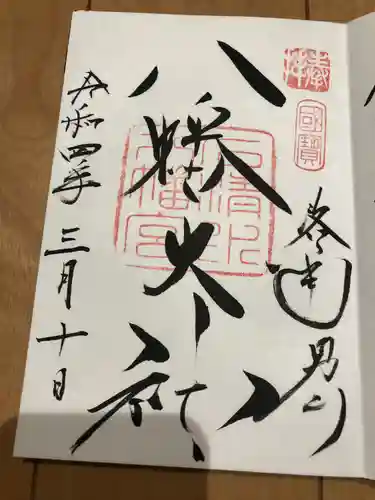 奉拝
國寶
男山
八幡大神
石清水八幡宮
令和四年三月十日